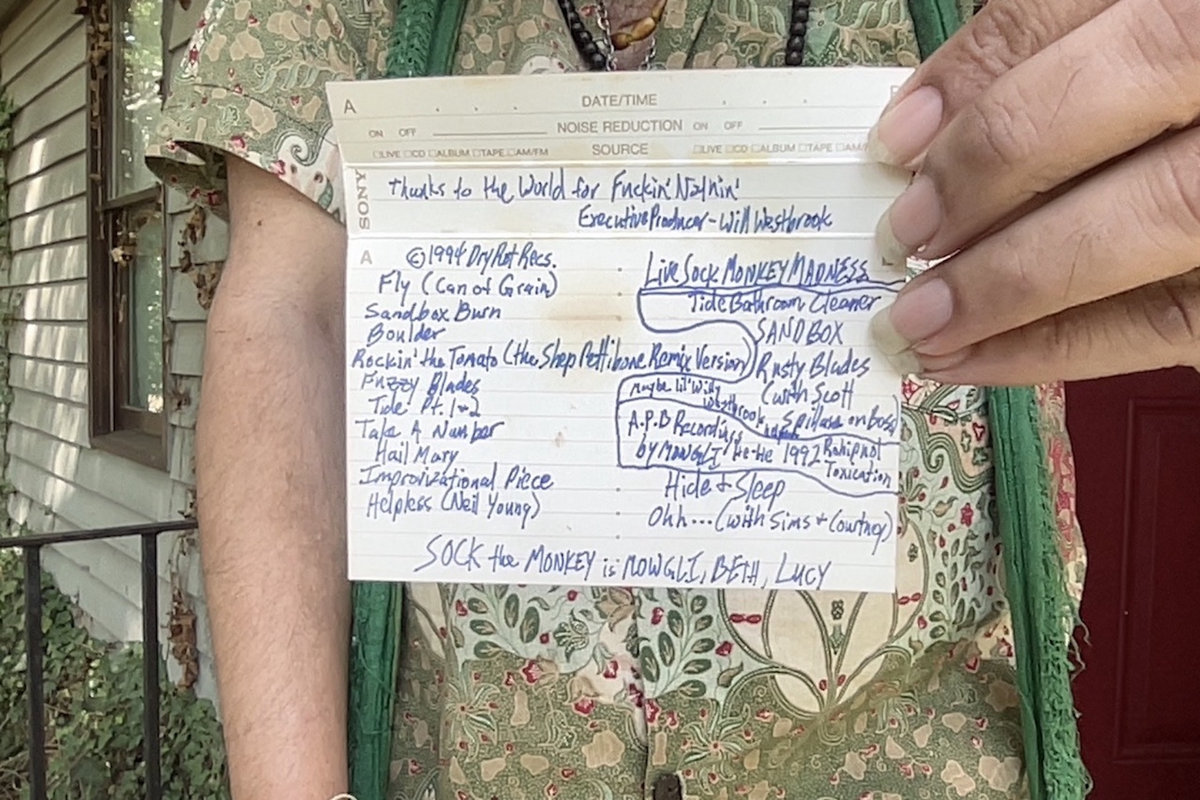 A DATE/TIME
ON OFF NOISE REDUCTION ON OFF
□LIVE □CD □ALBUM □TAPE □AM/FM SOURCE □LIVE □CD □ALBUM □TAPE □AM/
SONY
Thanks to the World for Fuckin' Nothin'
Executive Producer - Will Westbrook
A
©1994 Dry Rot Recs.
Fly (Can of Grain)
Sandbox Burn
Boulder
Rockin' the Tomato (the Shep Pettibone Remix Version)
Fuzzy Blades
Tide Pt. 1+2
Take A Number
Hail Mary
Improvizational Piece
Helpless (Neil Young)
Live Sock MONKEY MADNESS
Tide Bathroom Cleaner
SANDBOX
Rusty Blades
(with Scott
Spillane on Bass)
Maybe Lil' Willy
Westbrook
A.P.B Recording
by MOWGLI He-He 1992
Rohipnol
Toxication
Hide + Sleep
Ohh... (with Sims + Courtney)
SOCK the MONKEY is MOWGLI, BETH, LUCY